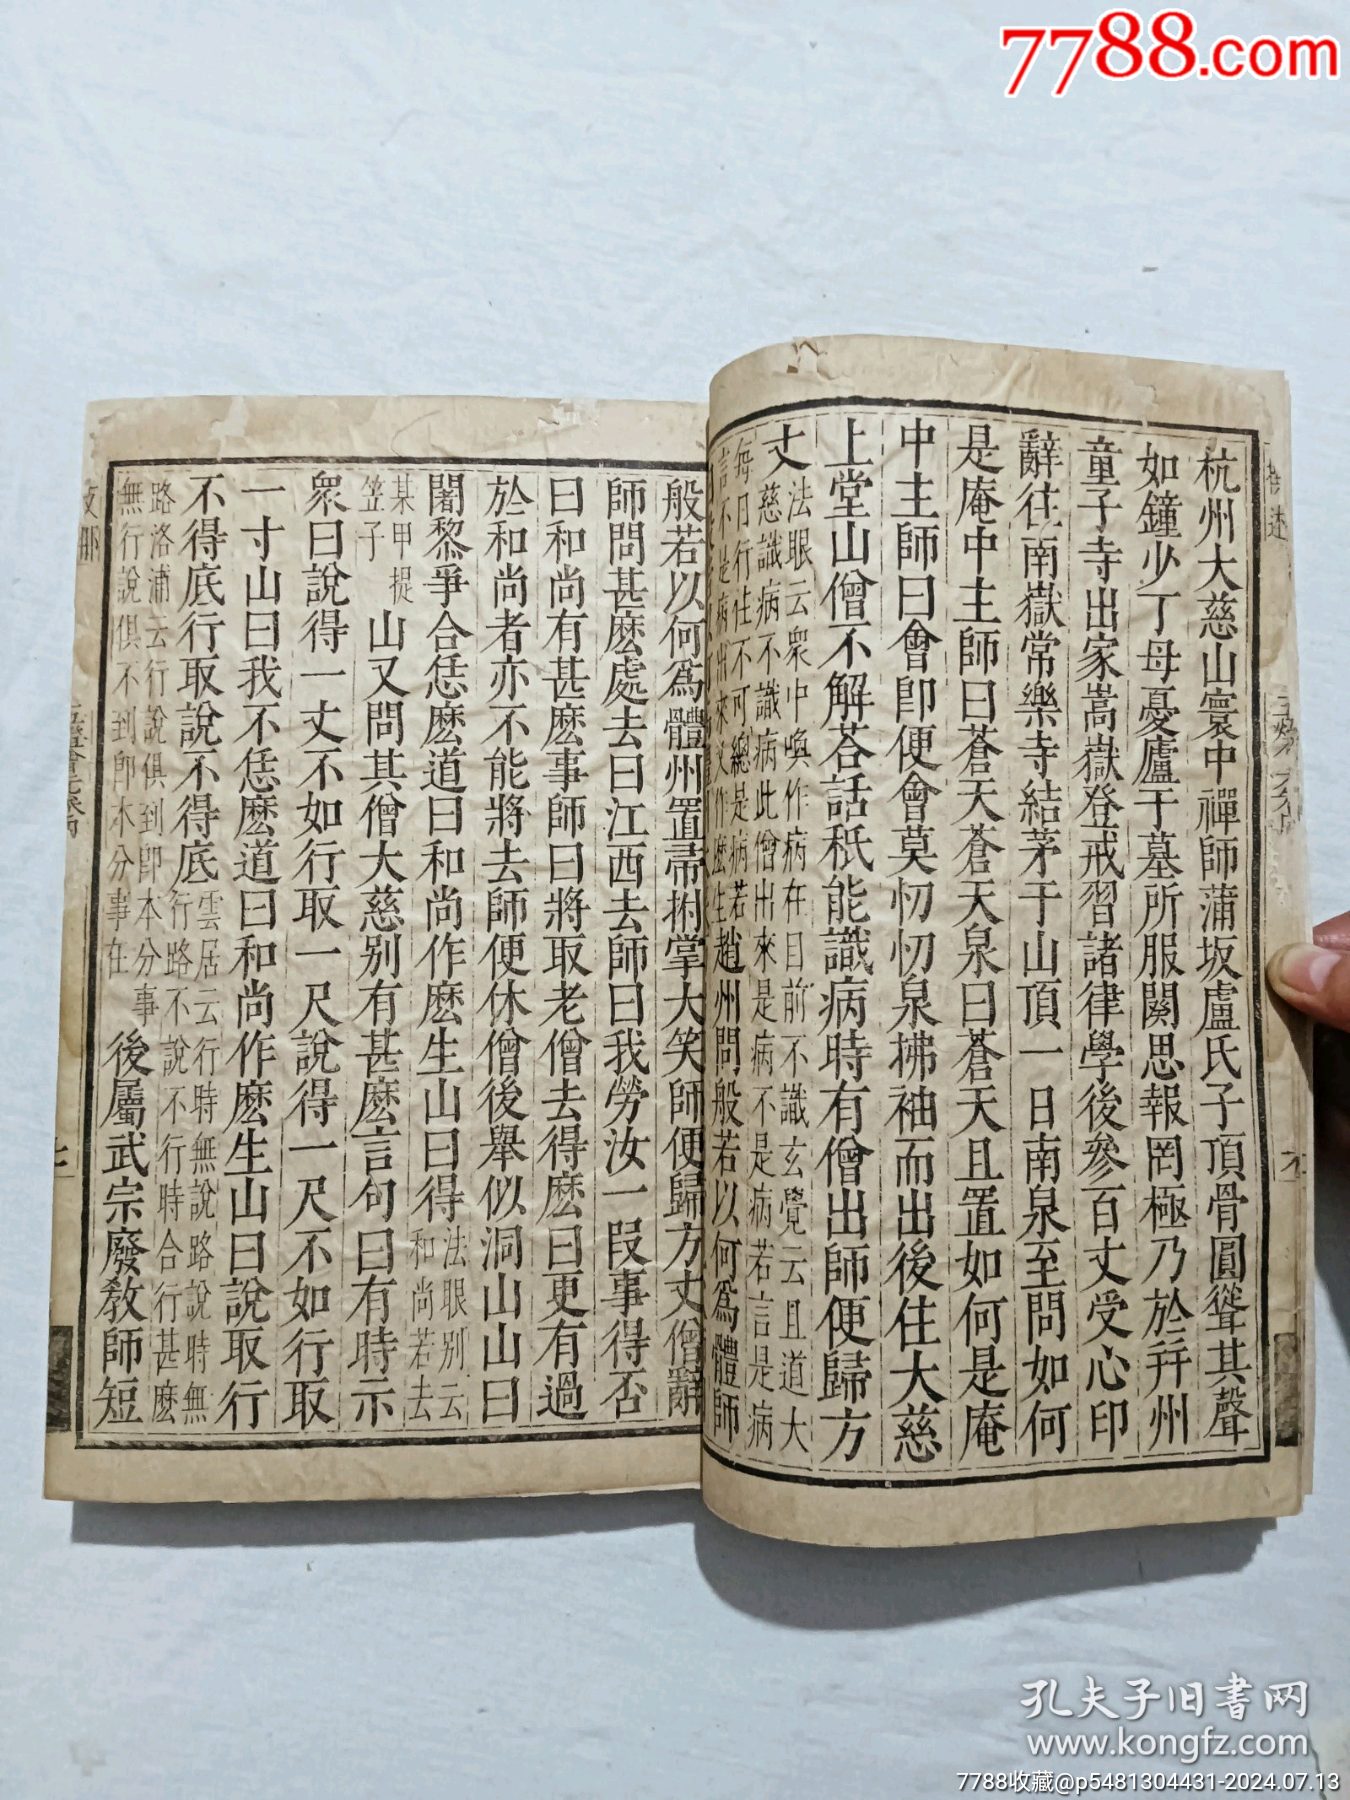 7788.com
杭州大慈山寰中禪師蒲坂盧氏子頂骨圓聳其聲
如鐘少丁母憂廬于墓所服闋思報罔極乃於并州
童子寺出家嵩嶽登戒習諸律學後參百丈受心印
辭往南嶽常樂寺結茅于山頂一日南泉至問如何
是庵中主師曰蒼天蒼天泉曰蒼天且置如何是庵
中主師曰會即便會莫忉忉泉拂袖而出後住大慈
上堂山僧不解荅話秖能識病時有僧出師便歸方
丈
法眼云衆中喚作病在目前不識玄覺云且道大
慈識病不識病此僧出來是病不是病若言是病
每日行住不可總是病若
言不是病出來又作麽生
趙州問般若以何爲體師
般若以何爲體州置帚拊掌大笑師便歸方丈僧辭
師問甚麽處去曰江西去師曰我勞汝一段事得否
曰和尚有甚麽事師曰將取老僧去得麽曰更有過
於和尚者亦不能將去師便休僧後舉似洞山山曰
闍黎爭合恁麽道曰和尚作麽生山曰得
法眼別云
和尚若去
某甲提
笠子
山又問其僧大慈別有甚麽言句曰有時示
衆曰說得一丈不如行取一尺說得一尺不如行取
一寸山曰我不恁麽道曰和尚作麽生山曰說取行
不得底行取說不得底
雲居云行時無說路說時無
行路不說不行時合行甚麽
路洛浦云行說俱到即本分事
無行說俱不到即本分事在
後屬武宗廢教師短
孔夫子旧書网
www.kongfz.com
7788收藏@p5481304431-2024.07.13